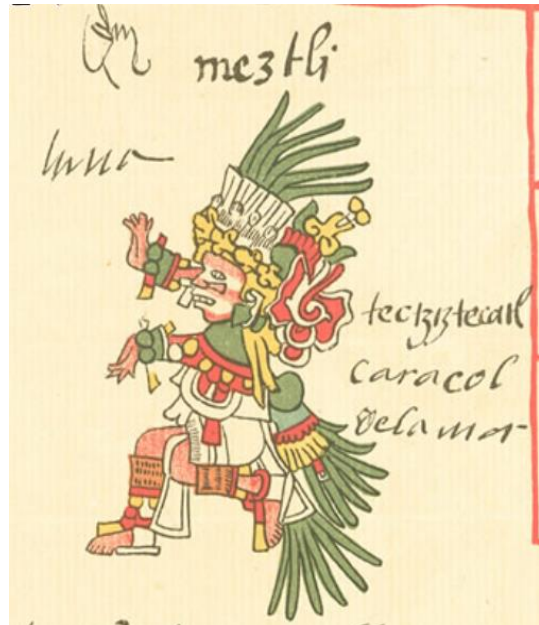 meztli
luna
tecziztecatl
caracol
dela mar